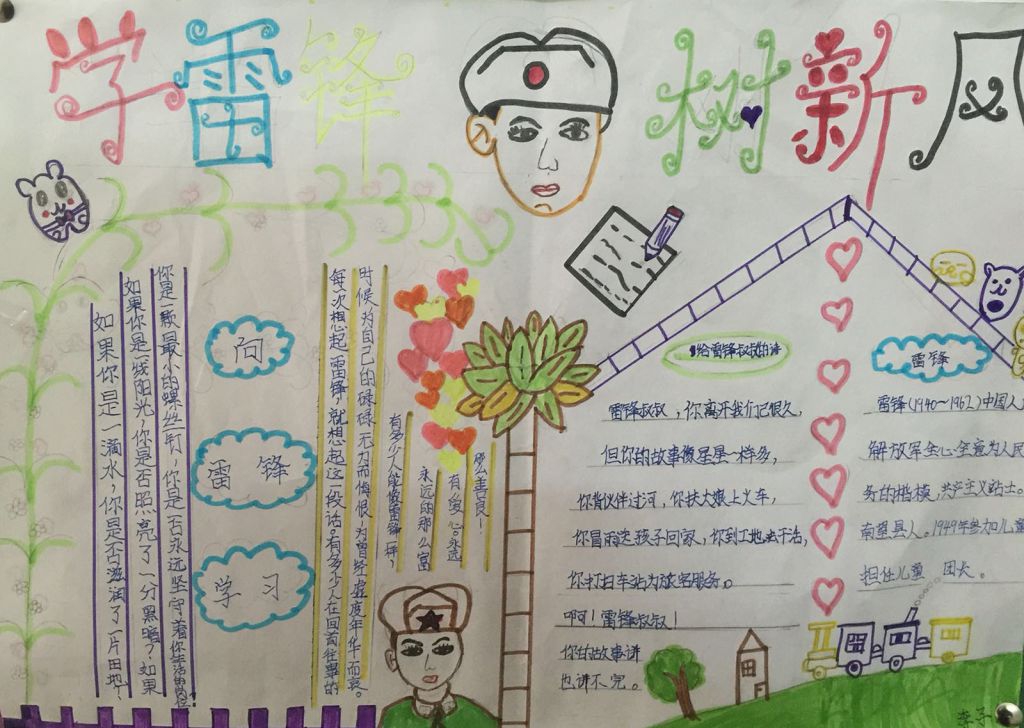 学雷锋 树新风
如果你是一滴水，你是否滋润了一片田地，
如果你是一线阳光，你是否照亮了一分黑暗，如果
你是一颗最小的螺丝钉，你是否永远坚守着你
向
雷锋
学习
每次想起雷锋，就想起这一段话。有多少人在回首往事的
时候为自己的碌碌无为而悔恨，为曾经虚度年华而哀。
有多少人能像雷锋一样，
永远的那么富
有爱心。永远
那么善良！
给雷锋叔叔的诗
雷锋叔叔，你离开我们已很久，
但你的故事像星星一样多，
你背伙伴过河，你扶大娘上火车，
你冒雨送孩子回家，你到工地去干活，
你打扫车站为旅客服务。
啊！雷锋叔叔！
你的故事讲
也讲不完。
雷锋
雷锋(1940～1962)中国人
解放军全心全意为人民
务的楷模，共产主义战士。
南望县人。1949年参加儿童
担任儿童 团长。
李子